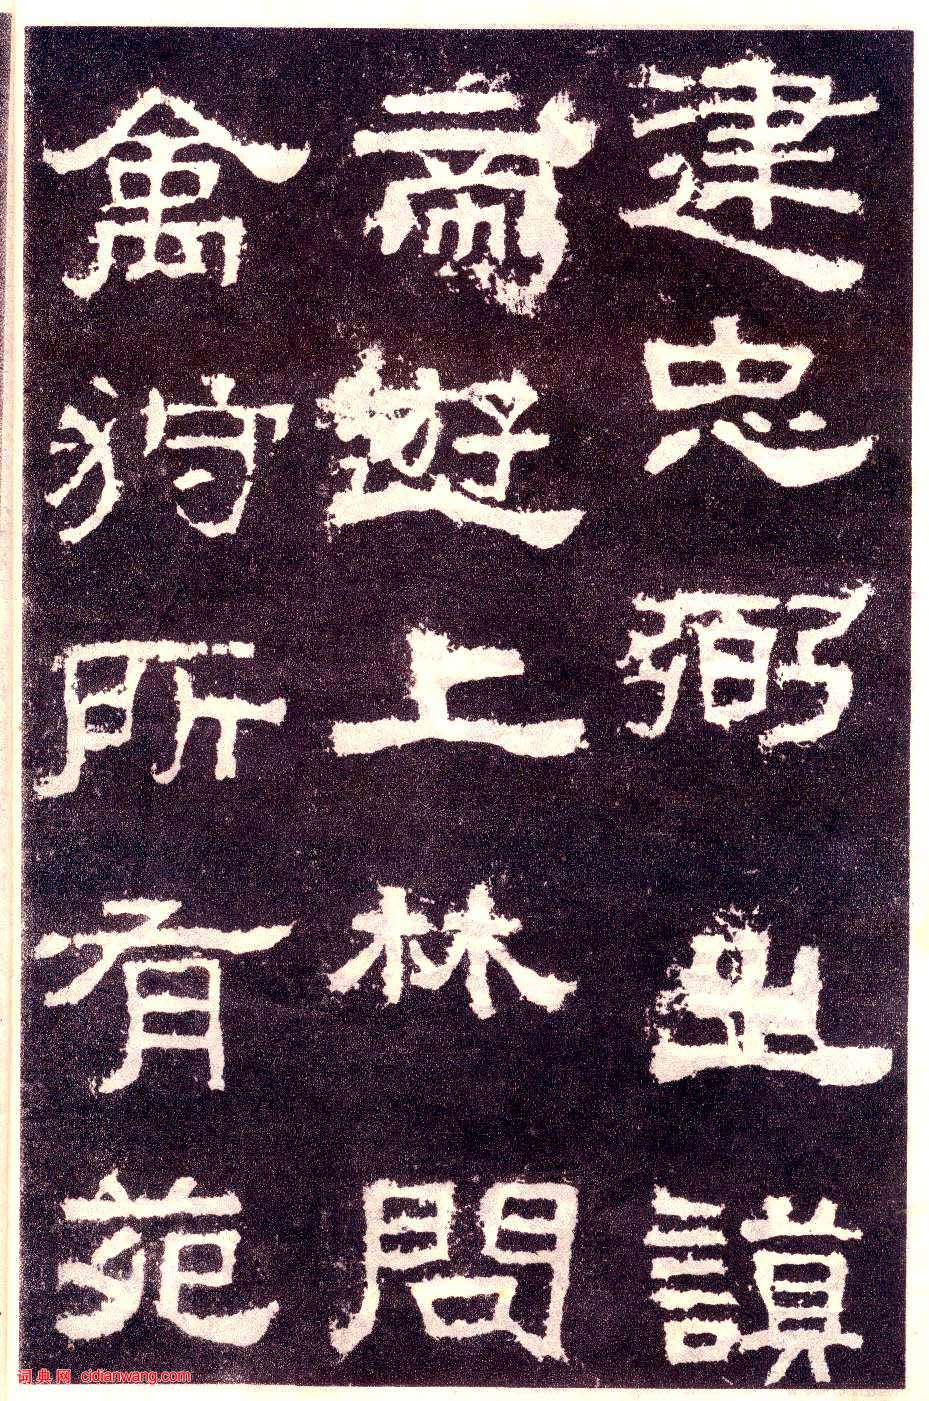 建忠弼之謨
帝遊上林問
禽狩所有苑
词典网 cidianwang.com